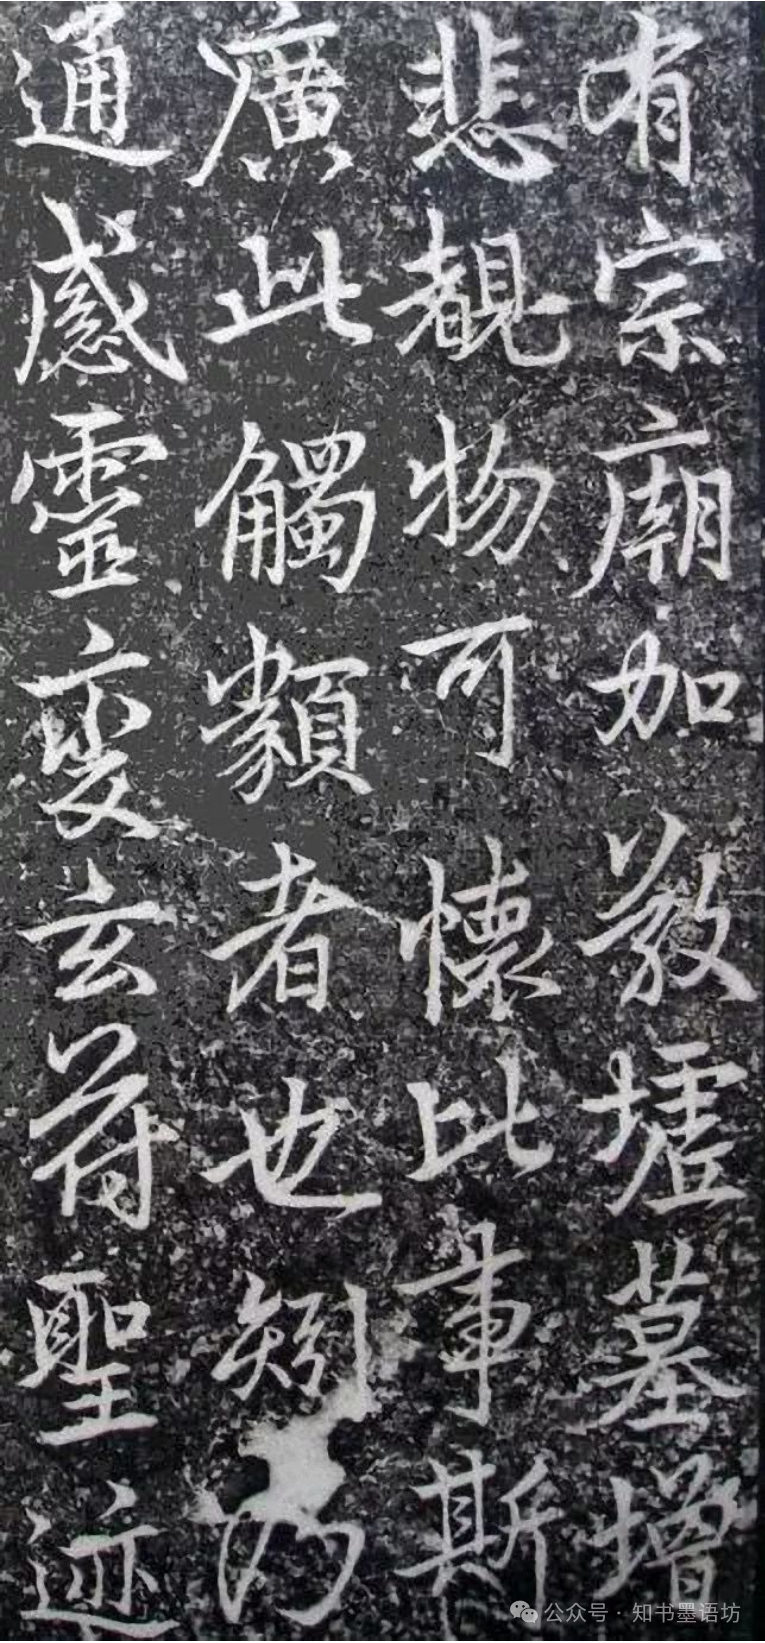 有宗廟加敬墟墓增
悲覩物可懷比事斯
廣此觸類者也矧乃
通感靈變玄符聖迹
公众号 · 知书墨语坊